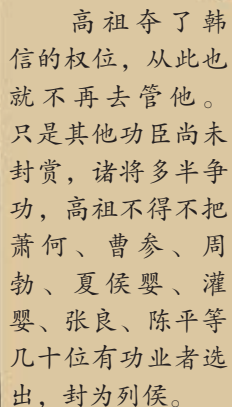 高祖夺了韩
信的权位，从此也
就不再去管他。
只是其他功臣尚未
封赏，诸将多半争
功，高祖不得不把
萧何、曹参、周
勃、夏侯婴、灌
婴、张良、陈平等
几十位有功业者选
出，封为列侯。